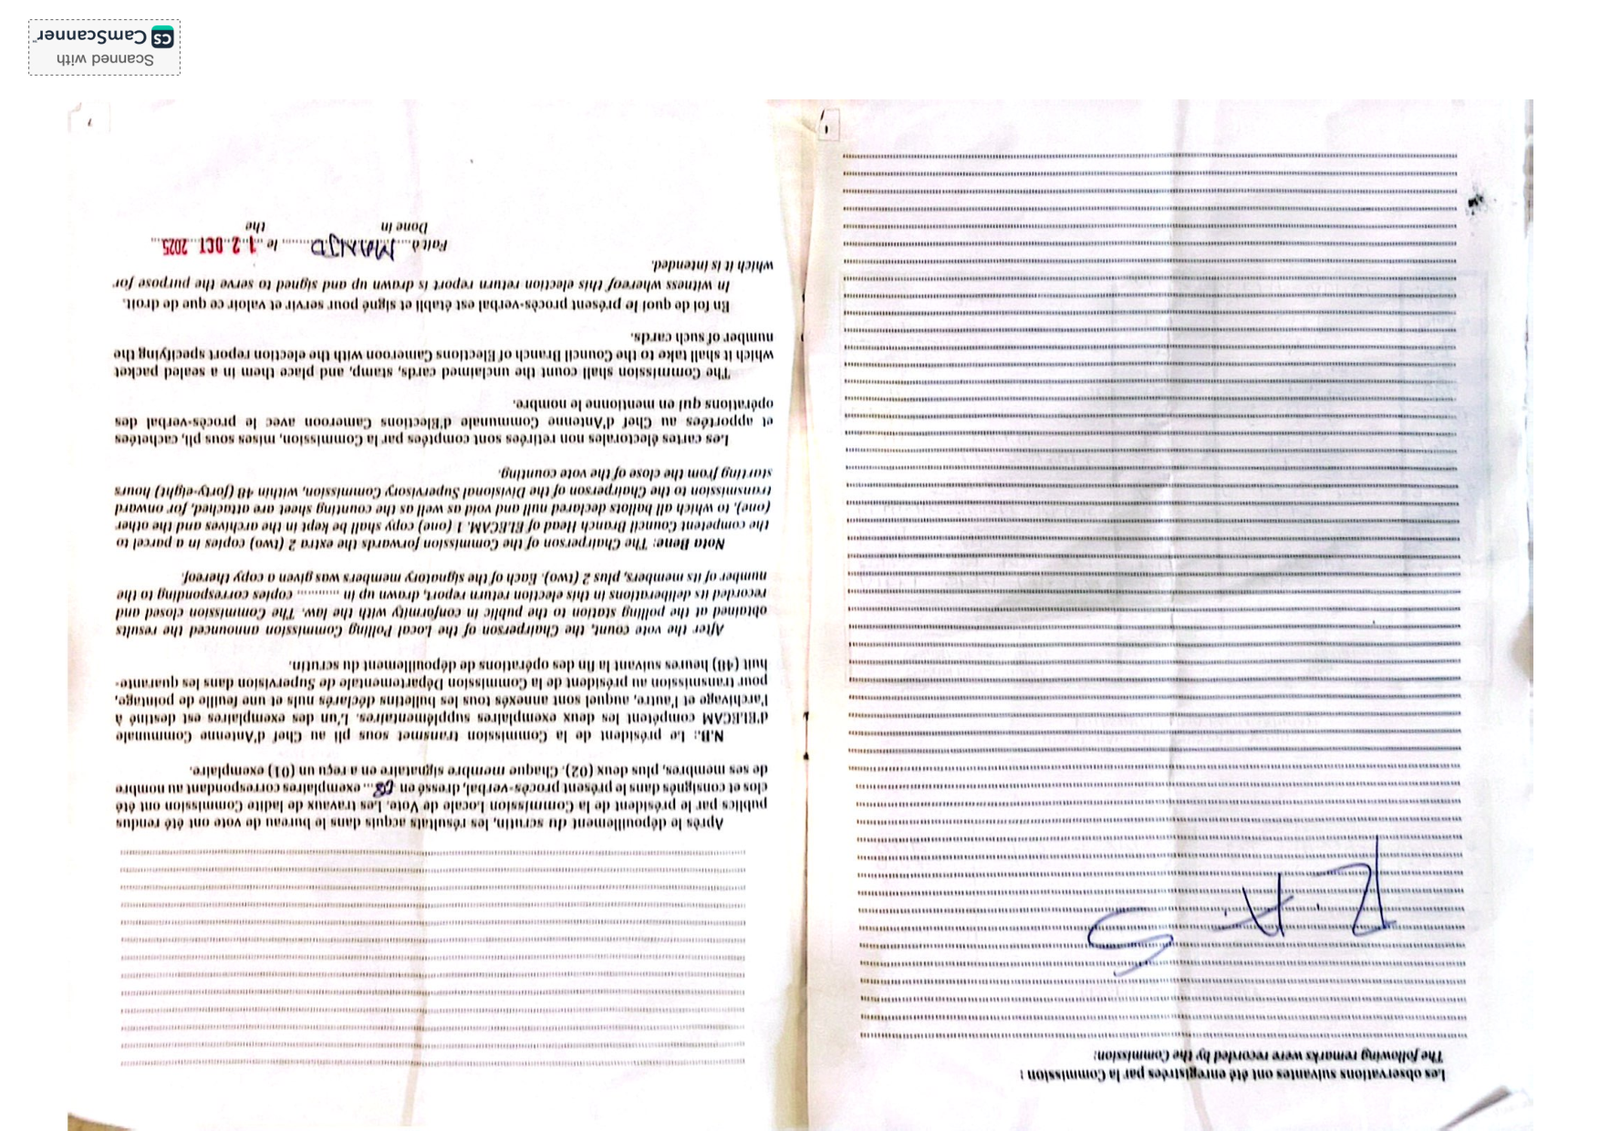 Les observations suivantes ont été enregistrées par la Commission :
The following remarks were recorded by the Commission:
R.A.S
Après le dépouillement du scrutin, les résultats acquis dans le bureau de vote ont été rendus
publics par le président de la Commission Locale de Vote. Les travaux de ladite Commission ont été
clos et consignés dans le présent procès-verbal, dressé en 08 exemplaires correspondant au nombre
de ses membres, plus deux (02). Chaque membre signataire en a reçu un (01) exemplaire.
N.B.: Le président de la Commission transmet sous pli au Chef d'Antenne Communale
d'ELECAM compétent les deux exemplaires supplémentaires. L'un des exemplaires est destiné à
l'archivage et l'autre, auquel sont annexés tous les bulletins déclarés nuls et une feuille de pointage,
pour transmission au président de la Commission Départementale de Supervision dans les quarante-
huit (48) heures suivant la fin des opérations de dépouillement du scrutin.
After the vote count, the Chairperson of the Local Polling Commission announced the results
obtained at the polling station to the public in conformity with the law. The Commission closed and
recorded its deliberations in this election return report, drawn up in ........... copies corresponding to the
number of its members, plus 2 (two). Each of the signatory members was given a copy thereof.
Nota Bene: The Chairperson of the Commission forwards the extra 2 (two) copies in a parcel to
the competent Council Branch Head of ELECAM. 1 (one) copy shall be kept in the archives and the other
(one), to which all ballots declared null and void as well as the counting sheet are attached, for onward
transmission to the Chairperson of the Divisional Supervisory Commission, within 48 (forty-eight) hours
starting from the close of the vote counting.
Les cartes électorales non retirées sont comptées par la Commission, mises sous pli, cachetées
et apportées au Chef d'Antenne Communale d'Elections Cameroon avec le procès-verbal des
opérations qui en mentionne le nombre.
The Commission shall count the unclaimed cards, stamp, and place them in a sealed packet
which it shall take to the Council Branch of Elections Cameroon with the election report specifying the
number of such cards.
En foi de quoi le présent procès-verbal est établi et signé pour servir et valoir ce que de droit.
In witness whereof this election return report is drawn up and signed to serve the purpose for
which it is intended.
Fait à MANJO le 12 OCT 2025
Done in the
Scanned with
CS CamScanner